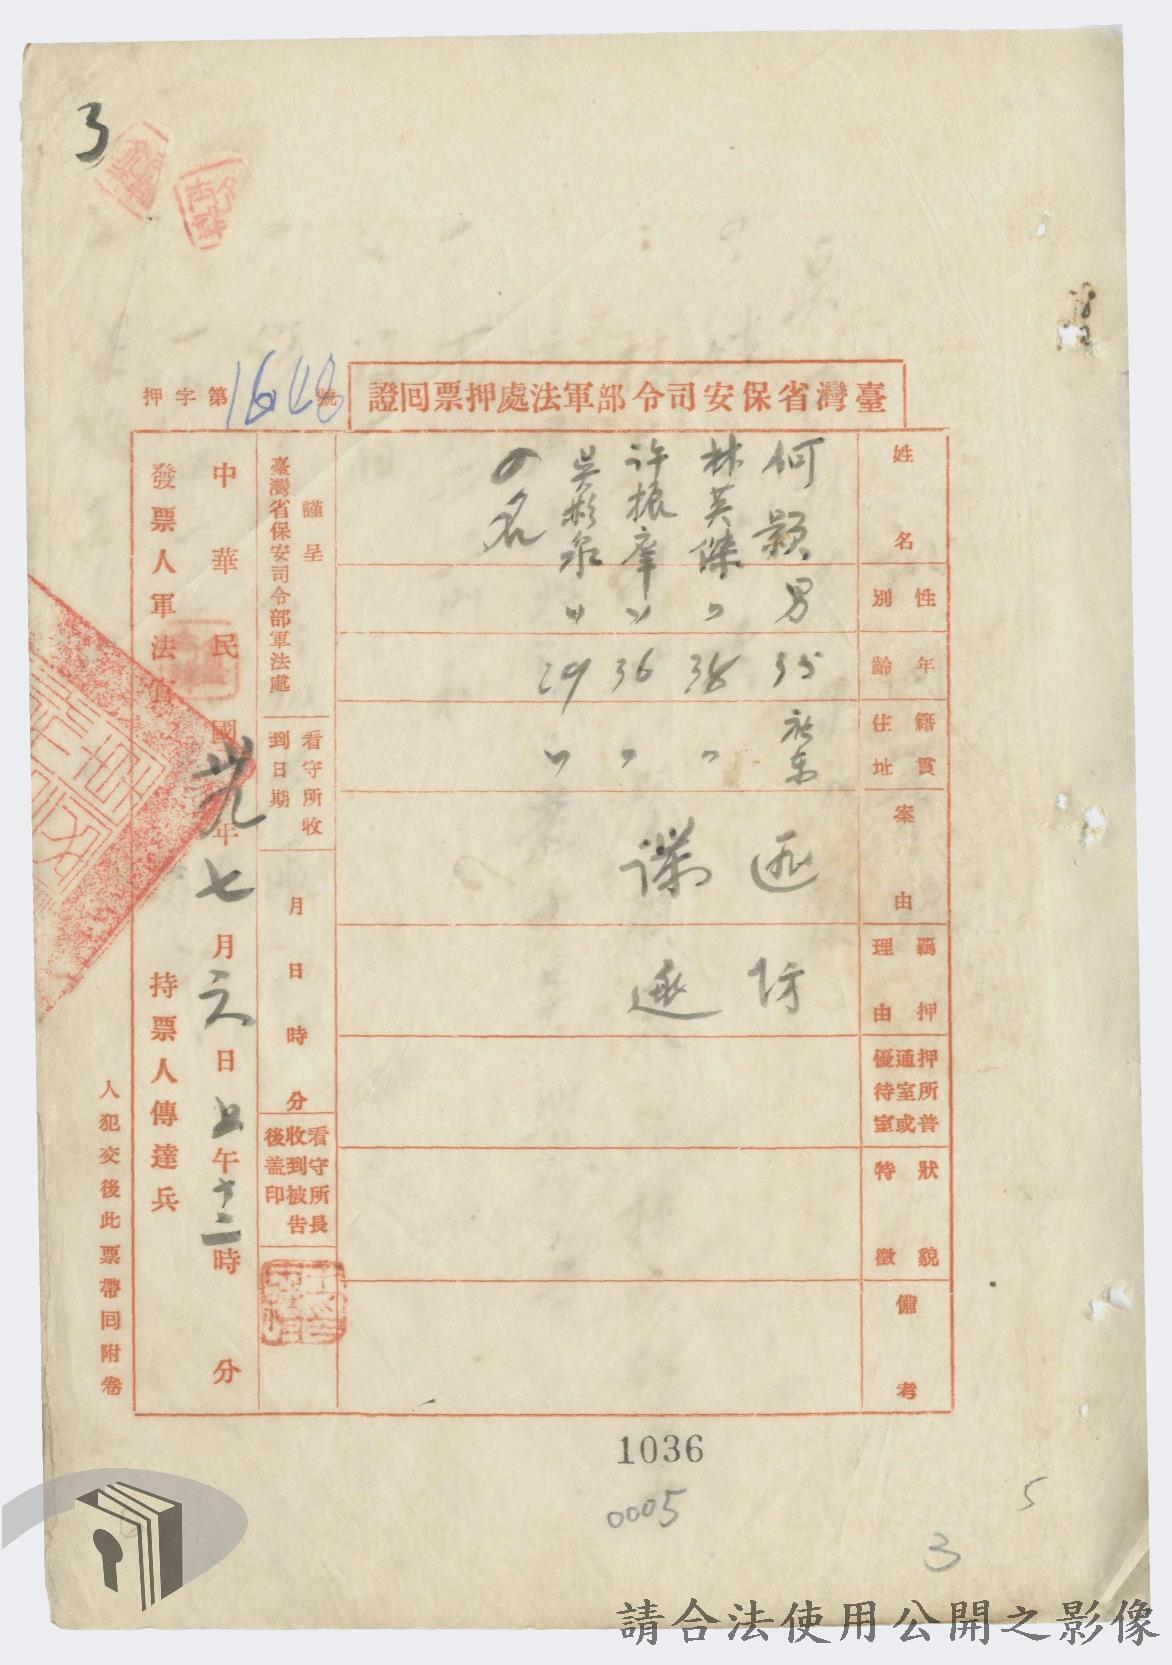 3
臺灣省保安司令部軍法處押票回證
押字第1648號
姓名
何顯
林英傑
許振庠
吳彬泉
4名
性別
男
〃
〃
〃
年齡
35
38
36
29
籍貫住址
廣東
〃
〃
〃
案由
匪諜
羈押理由
防逃
押所普通室或優待室
狀貌特徵
備考
謹呈
臺灣省保安司令部軍法處
看守所收到日期
月日時分
看守所長收到被告後盖印
中華民國卅九年七月六日上午十二時分
發票人軍法官
持票人傳達兵
人犯交後此票帶回附卷
1036
0005
5
3
請合法使用公開之影像